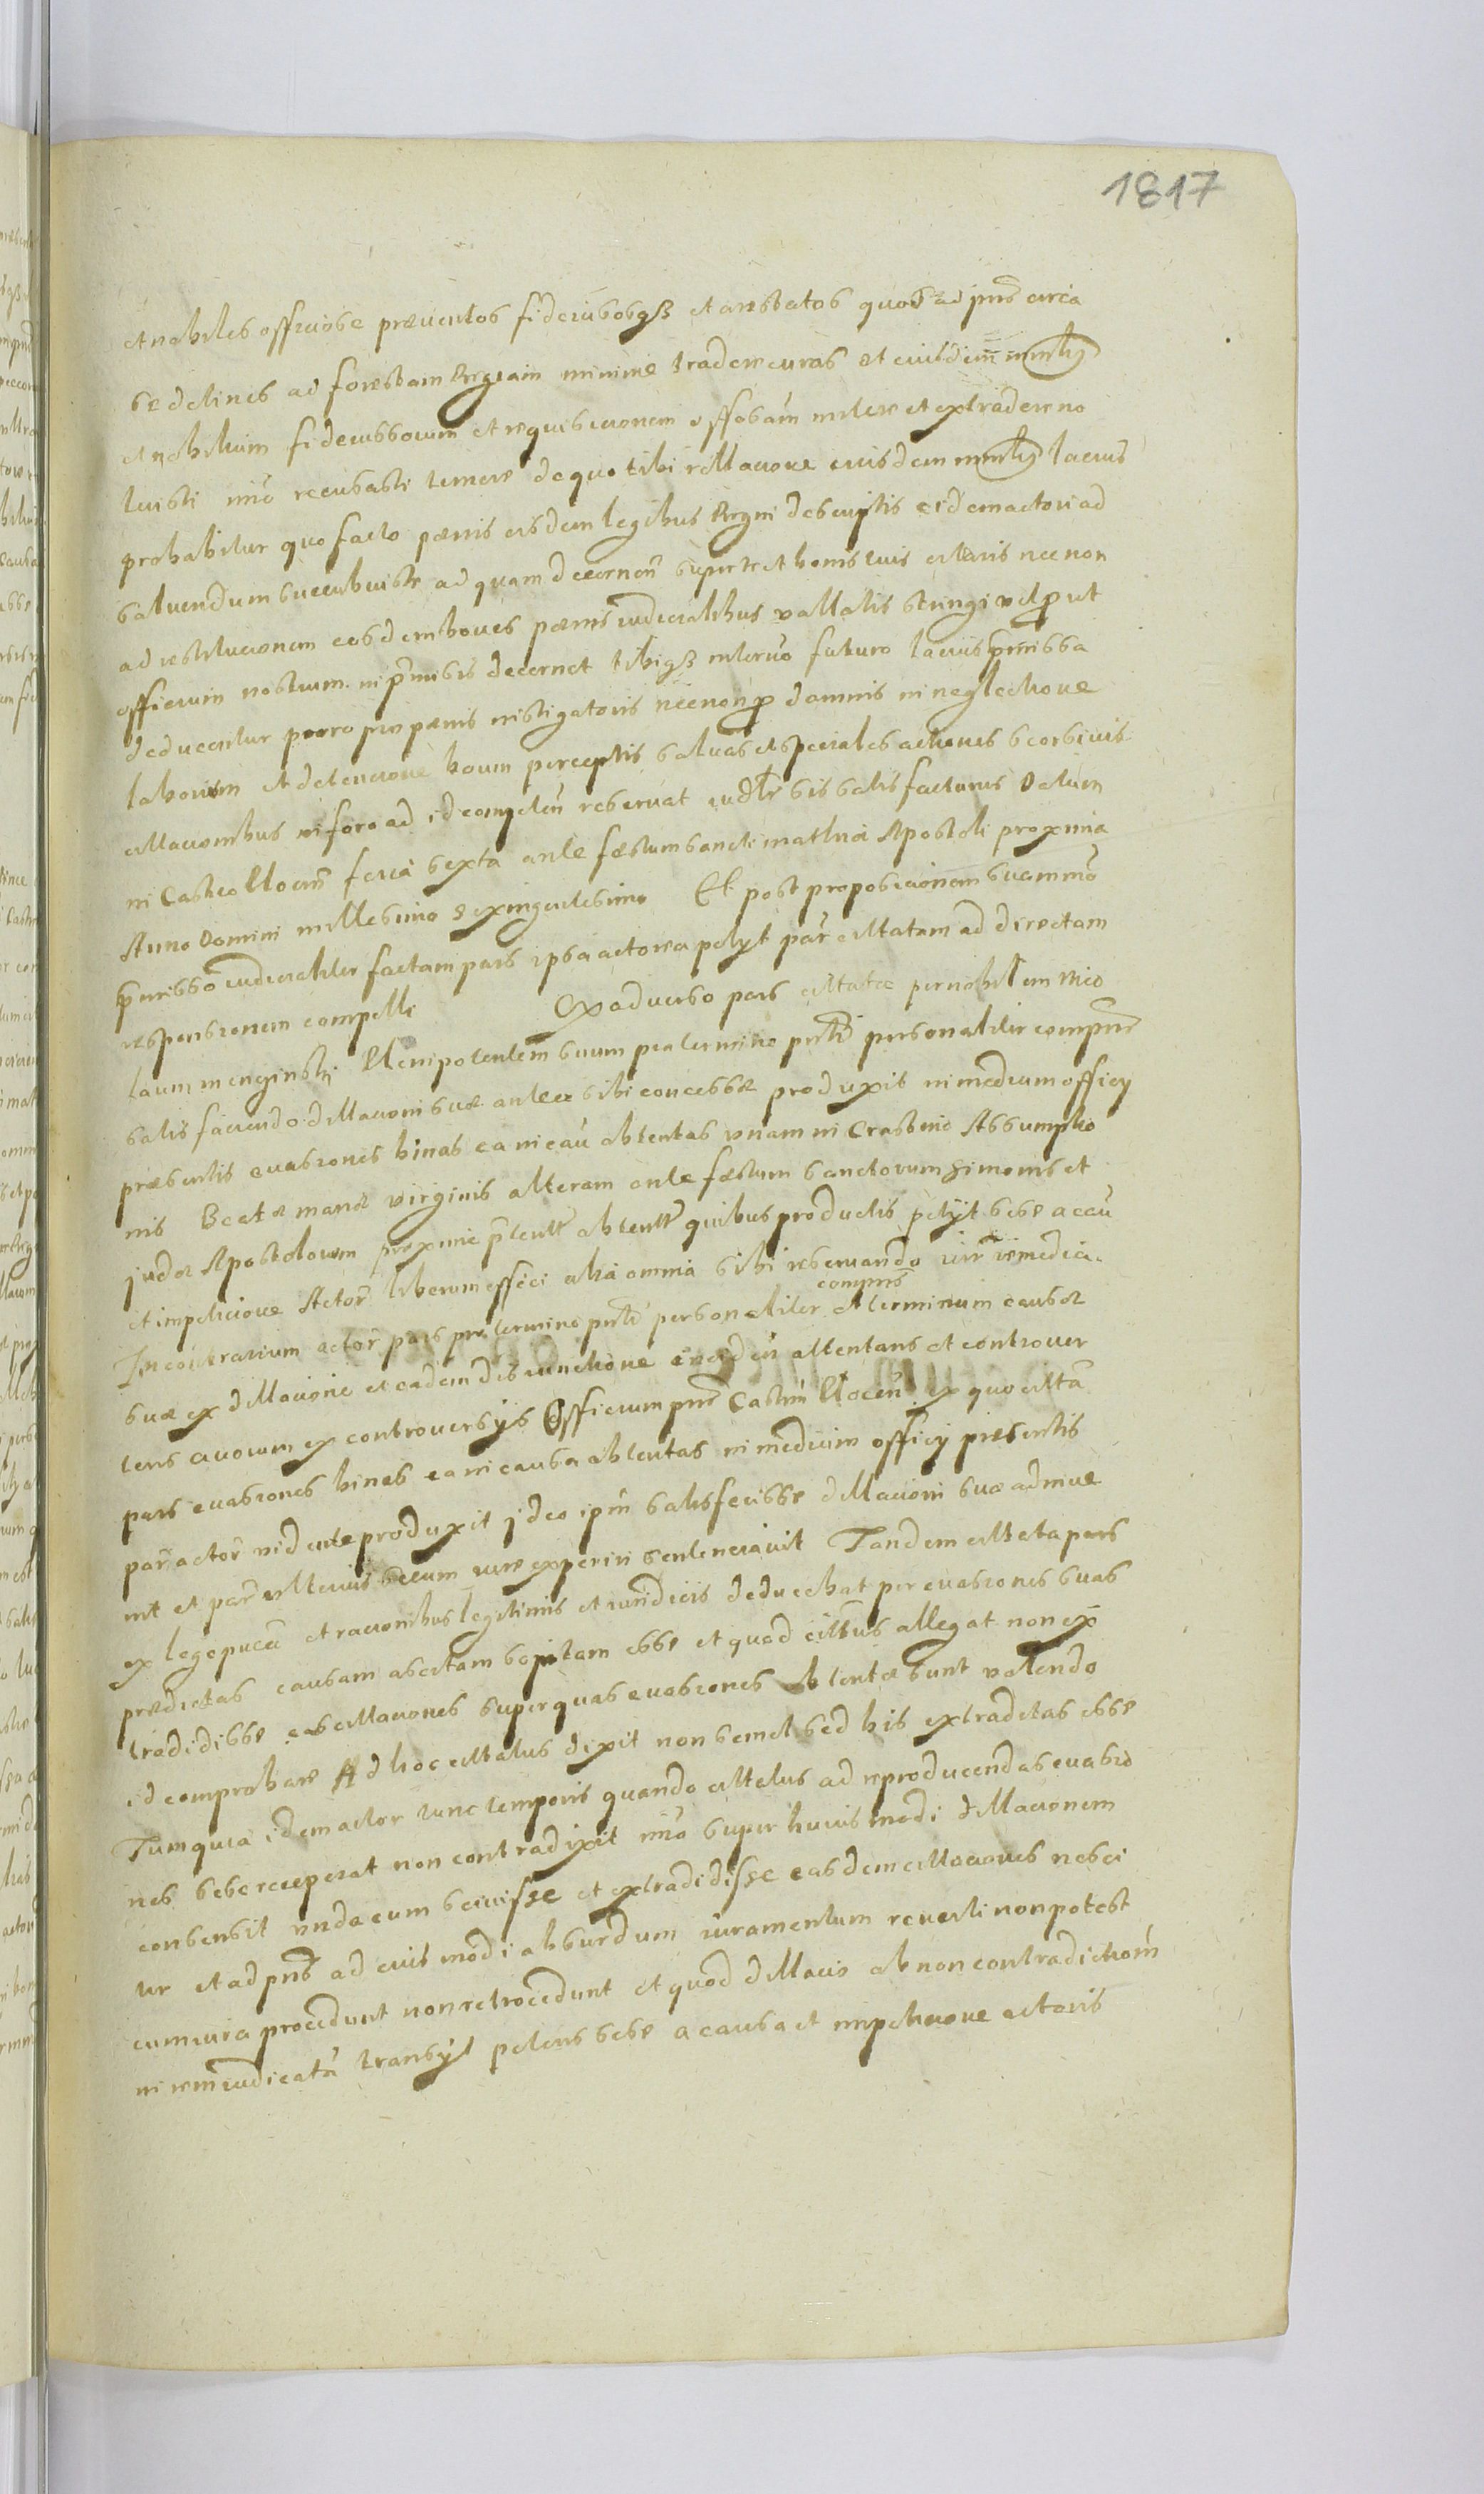 1817
et nobiles officiose praeventos fideiussosqß et arestatos quos ad pns circa
se detines ad forestam Regiam minime tradere curas et eiusdem mnrlis
et nobilium fideiussorum et requisicionem offosam mitere et extradere no
luisti imo recusasti temere de quo tibi rellacione eiusdem mnrlis lacius
probabitur quo facto paenis eisdem legibus Regni descriptis eidem actori ad
saluendum succubuiste ad quam decernen super te et bonis tuis citaris nec non
ad restitucionem eosdem boues paenis iudicialibus vallatis stringi vel prout
officium nostrum in pmissis decernet tibiqß in termo futuro lacius pmissa
deducentur porro pro paenis instigatoris nec non pro damnis in neglectione
laborum et detencione boum perceptis saluas et speciales actiones seorsiuis
cittacionibus in foro ad id competen reseruat iudlr sis satisfacturus Datum
in Castro Llocen feria sexta ante faestum sancti Mathiae Apostoli proxima
Anno Domini millesimo sexingentesimo Et post proposicionem suam mo
pmisso iudicialiter factam pars ipsa actorea petyt par cittatam ad directam
responsionem compelli Ex aduerso pars cittata per nobilem Nico
laum menginski Plenipotentem suum pro termino pnti personaliter comparen
satisfaciendo dillacioni suae antea sibi concessae produxit in medium officy
praesentis euasiones binas ea in cau obtentas vnam in Crastino Assumptio
nis Beatae mariae virginis alteram ante faestum sanctorum Simonis et
Judae Apostolorum proxime pterit obtent quibus productis petyt sese a cau
et impeticione Actor liberum effici alia omnia sibi reseruando iur remedia.
In contrarium actor pars pro termino pnti personaliter compns et terminum causae
suae ex dillacione et eadem distinctione eviden attentans et controuer
tens auorum ex controuersys Officium pns Castrn Llocen ex quo citta
pars euasiones binas ea in causa obtentas in medium officy presentis
par actor vidente produxit ideo ipm satisfecisse dillacioni suae adinue
nit et par ulterius secum iure experiri sentenciauit Tandem cittata pars
ex lege pucta et racionibus legitimis et iuridicis deducebat per euasiones suas
praedictas causam abcitam sopitam esse et quod cittatus allegat non ex
tradidisse eas cittaciones super quas euasiones obtentae sunt valendo
id comprobare Ad hoc cittatus dixit non semel sed bis extraditas esse
Tum quia idem actor tunc temporis quando cittatus ad reproducendas euasio
nes sese receperat non contradixit imo super huiusmodi dillacionem
consensit vnde eum sciuisse et extradidisse easdem cittaciones nosci
tur et ad pns ad eiusmodi absurdum iuramentum reuerti non potest
cum iura procedunt non retrocedunt et quod dillacio ab non contradictiom
in rem iudicata transyt petens sese a causa et impeticione actoris